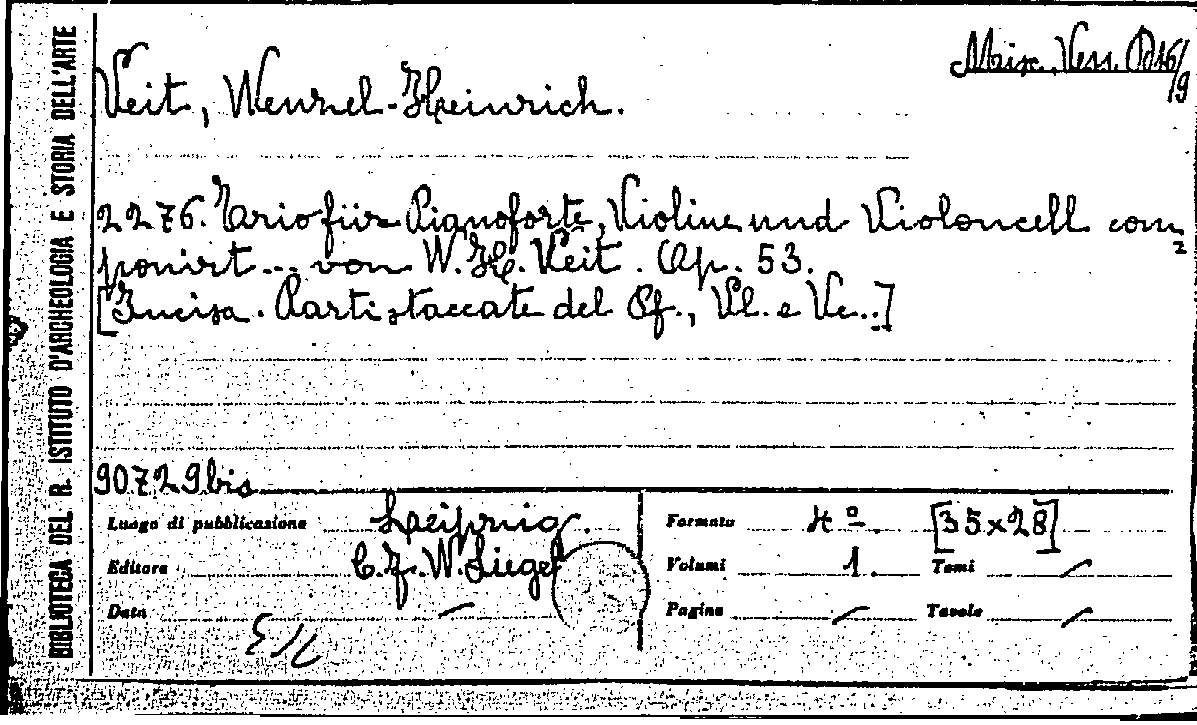 BIBLIOTECA DEL R. ISTITUTO D'ARCHEOLOGIA E STORIA DELL'ARTE
Misc. Ven. Od 16/9
Veit, Wenzel-Heinrich.
2276. Trio für Pianoforte, Violine und Violoncell com=
ponirt... von W. H. Veit. Op. 53.
[Incisa. Parti staccate del Pf., Vl. e Vc..]
90729bis
Luogo di pubblicazione Leipzig.
Editore C.F.W. Siegel
Data /
Formato 4º. [35x28]
Volumi 1. Tomi /
Pagine / Tavole /